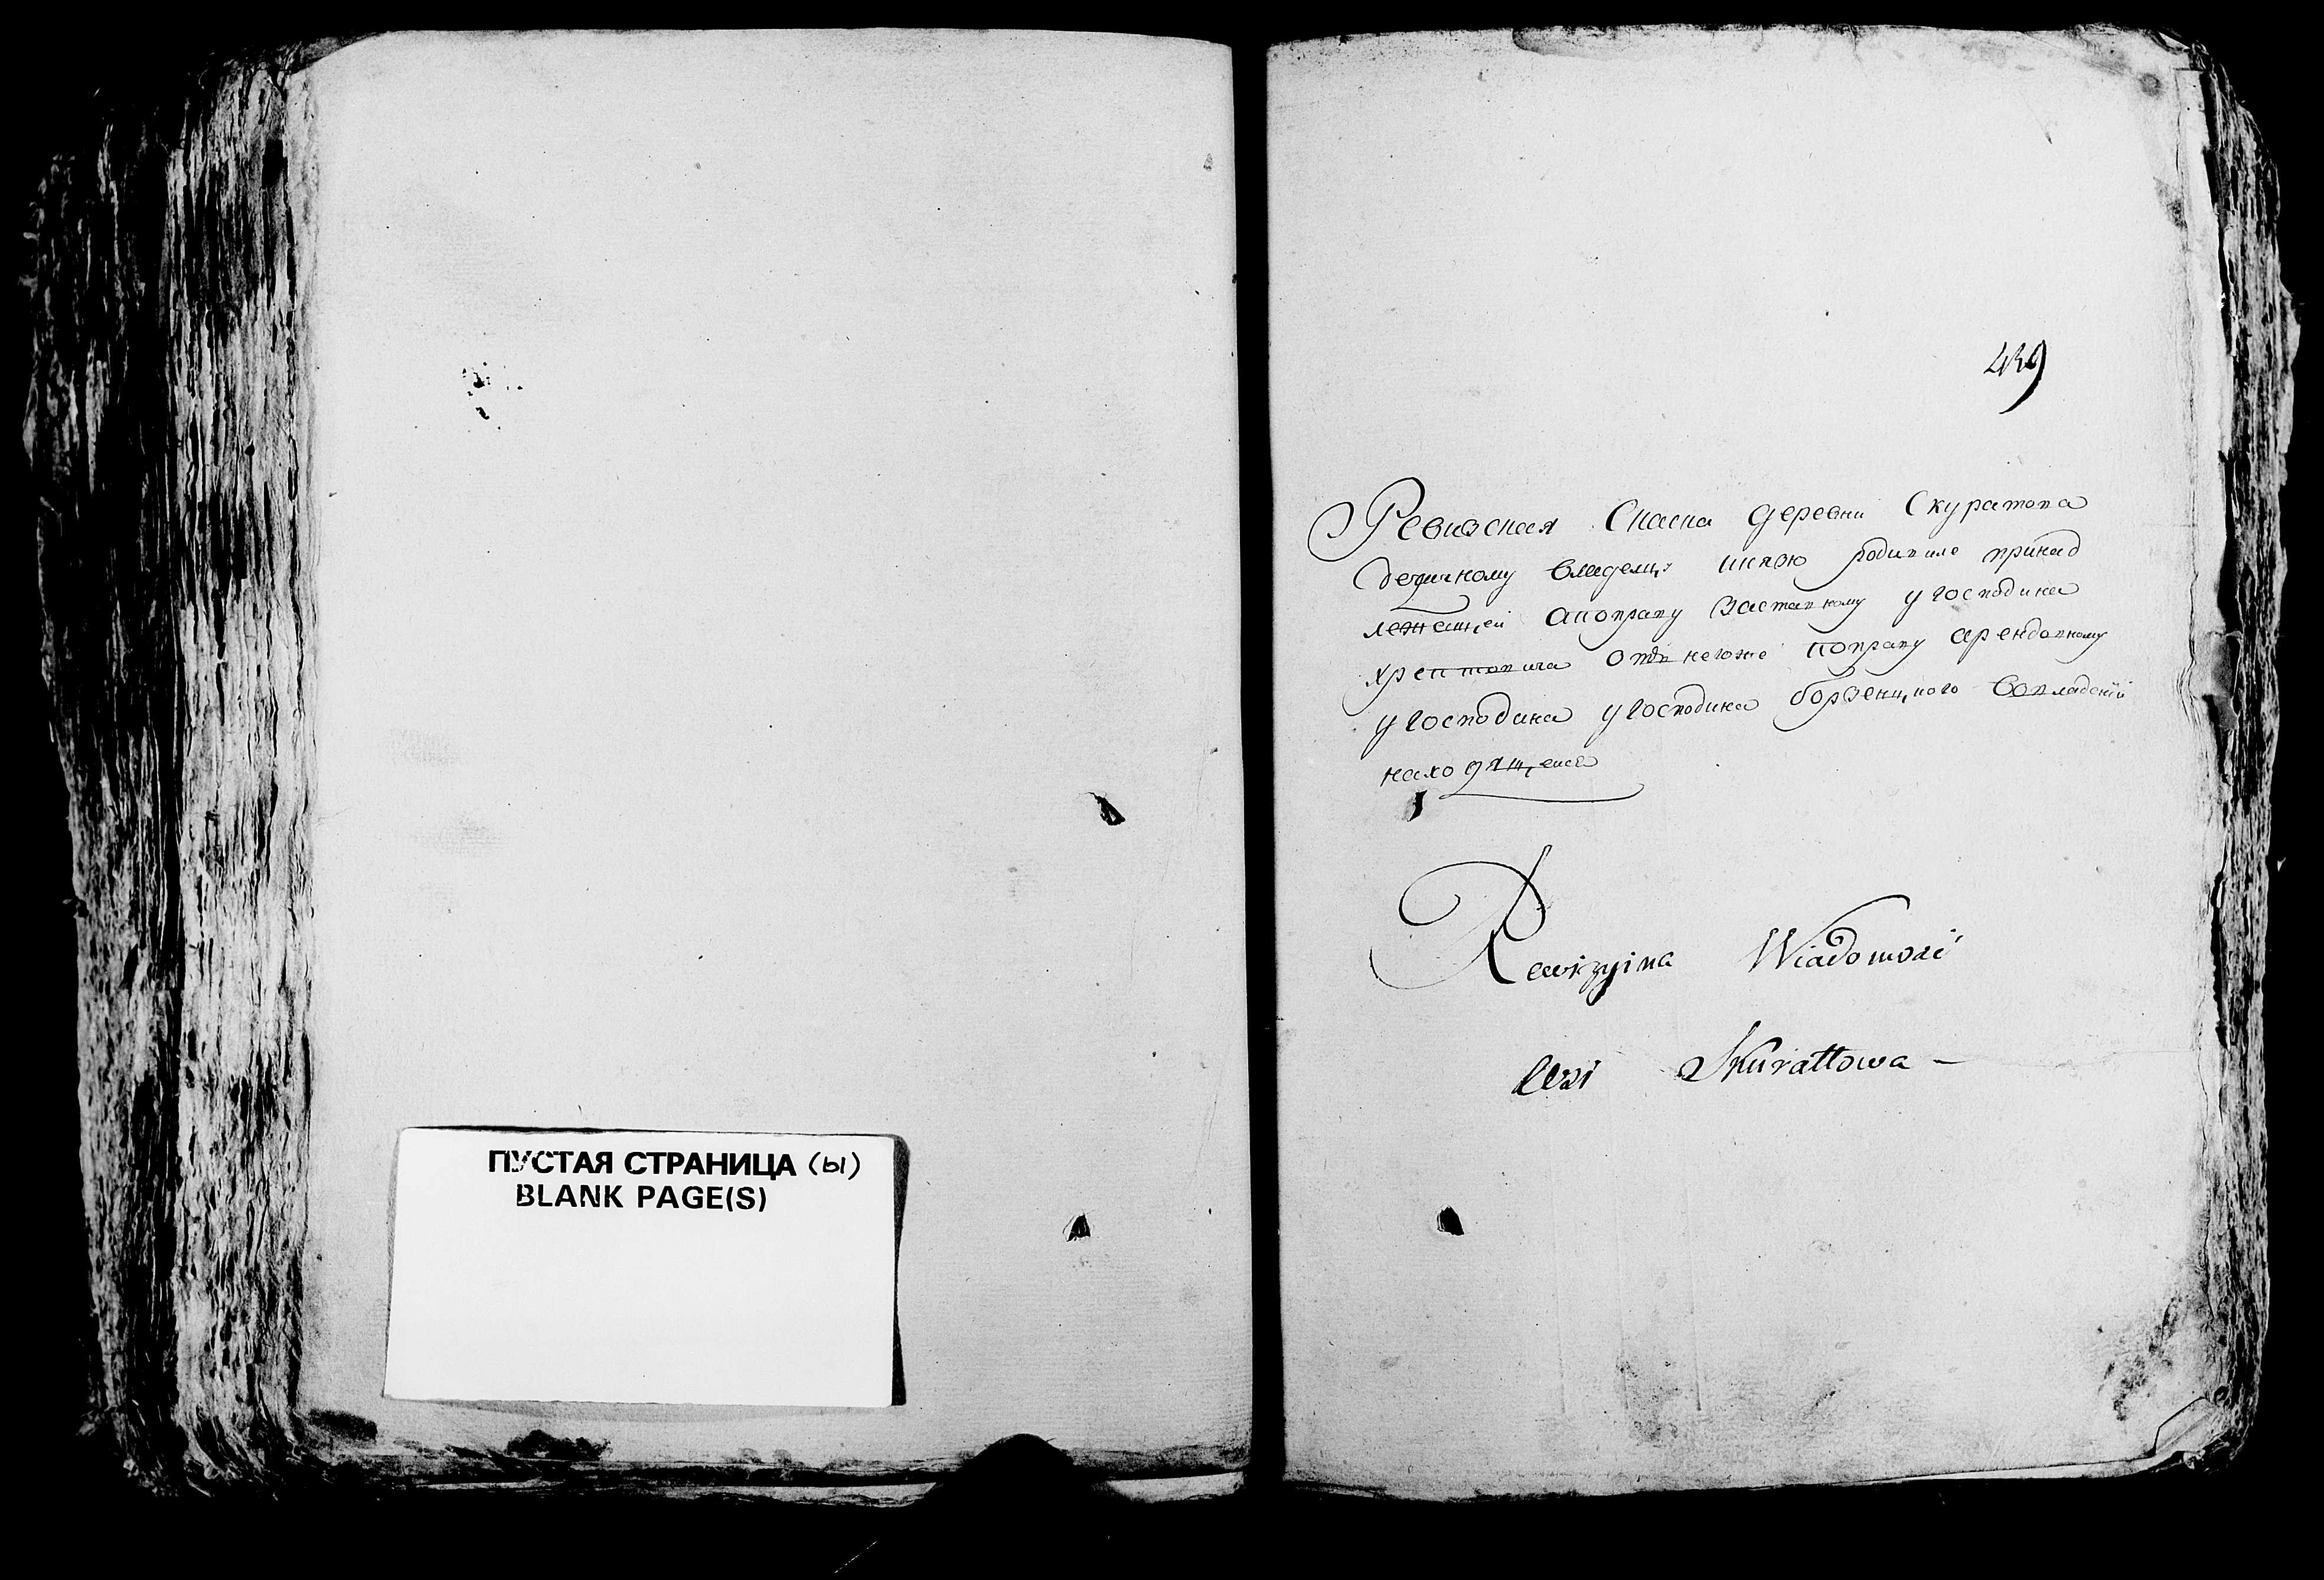 ПУСТАЯ СТРАНИЦА (ы)
BLANK PAGE(S)
439
Ревизская Скаска деревни Скуратова
дедичному владелцу князю радивиле принад
лежащей апоправу заставному угосподина
хрептовича отнегоже поправу арендовному
угосподина угосподина борзенцкого вовладений
находящейся
Rewizyina Wiadomość
Wsi Skurattowa –